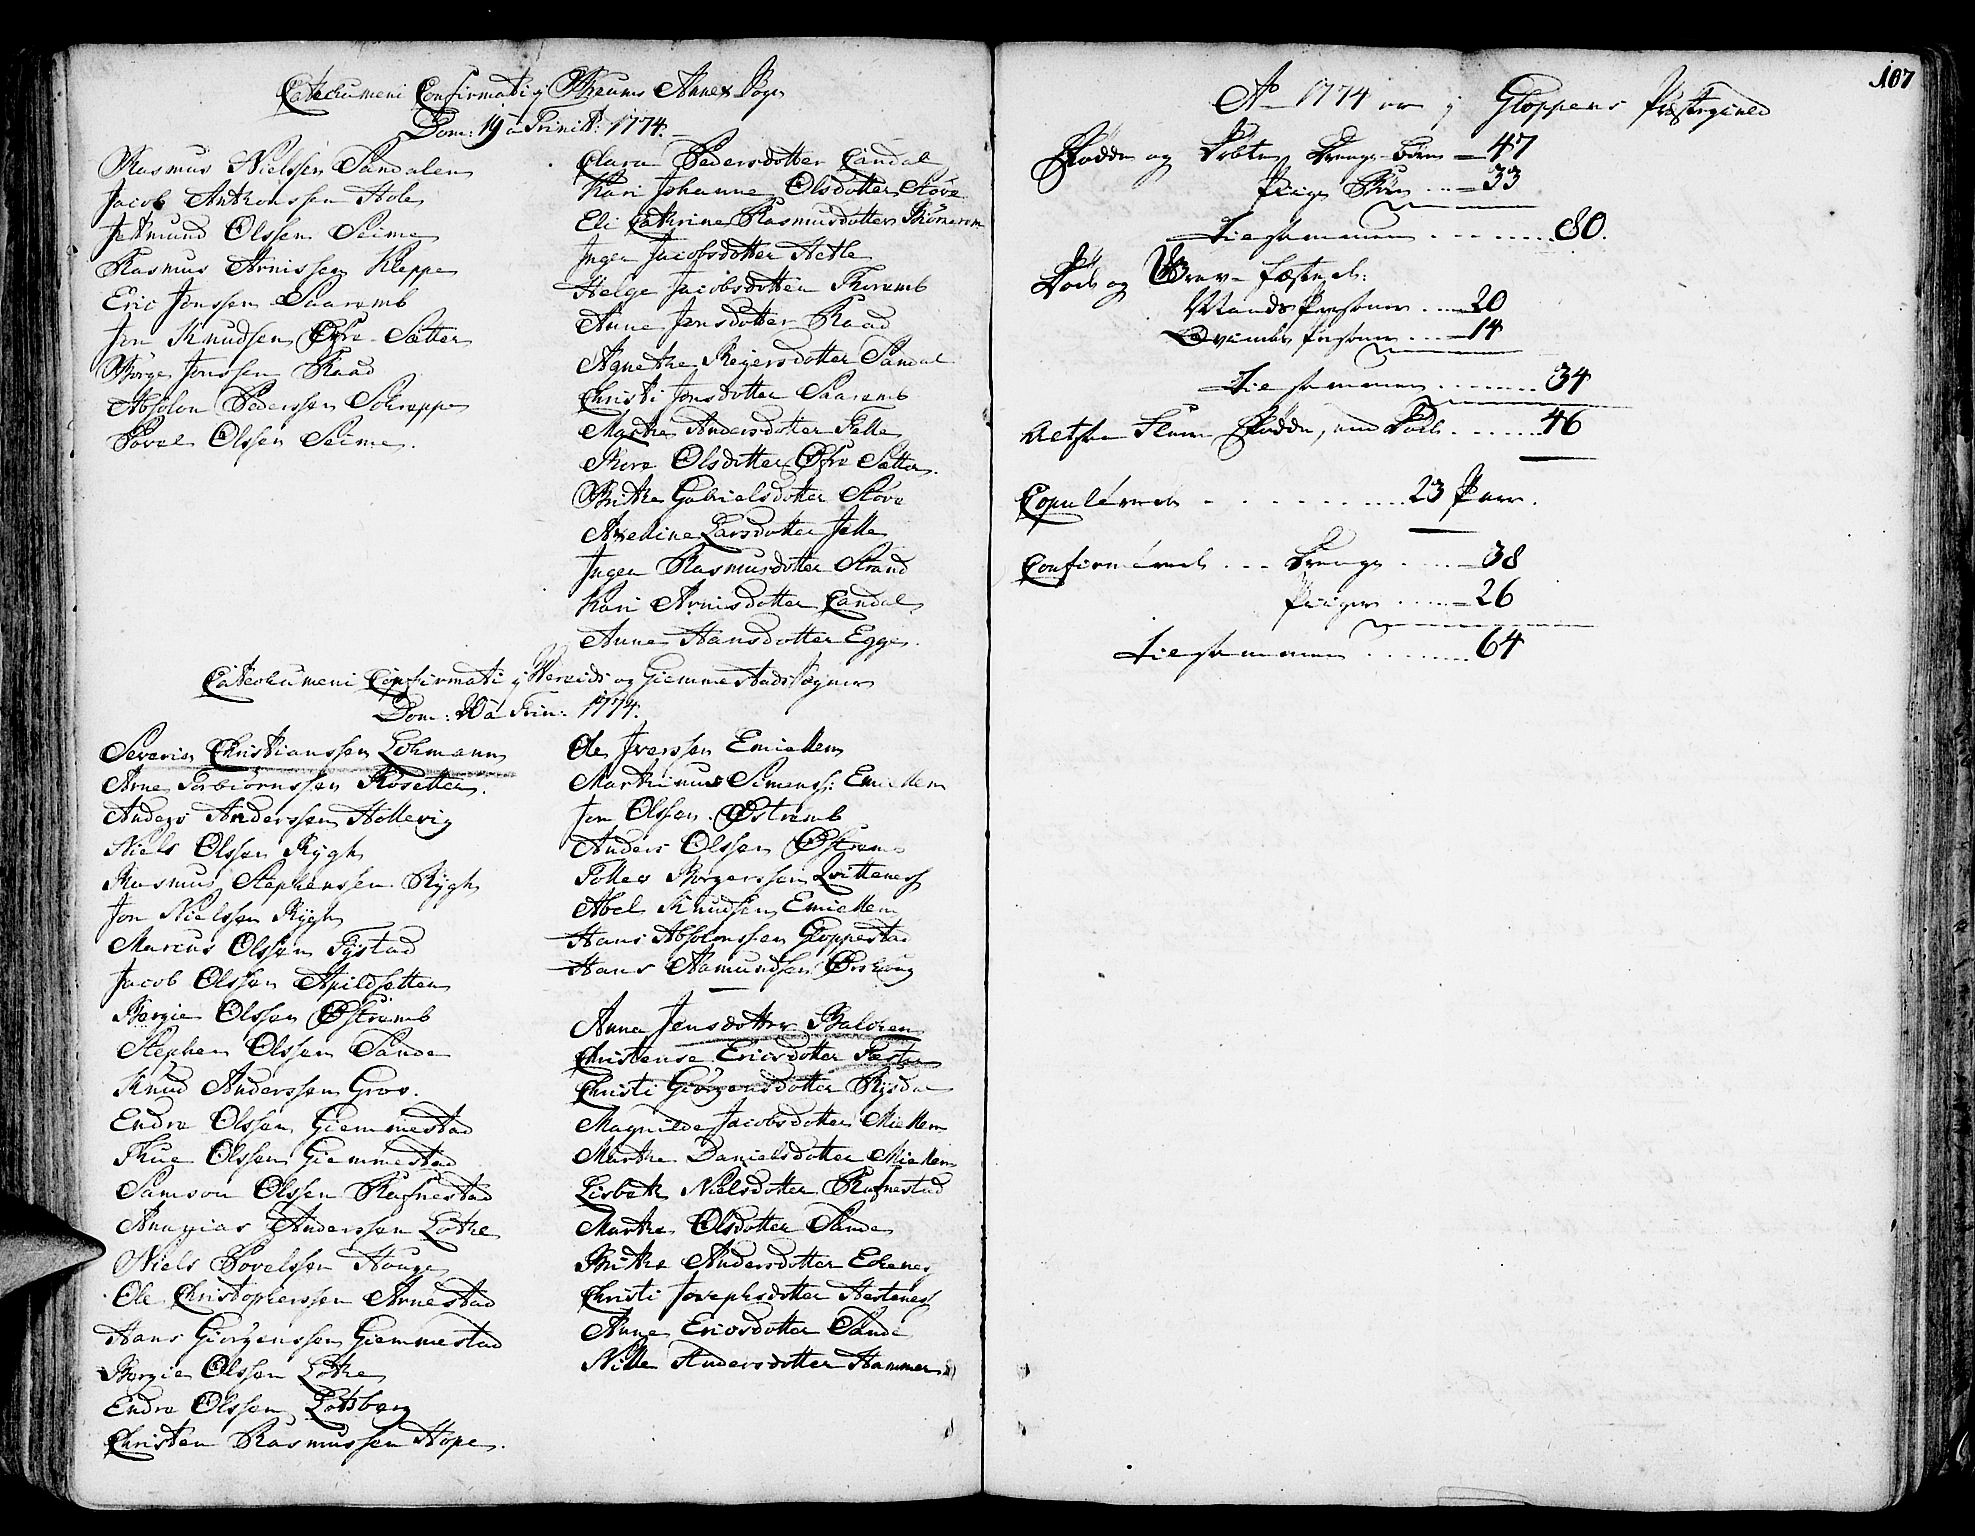 Catechumeni Confirmati j Annex Sogn
Dom: 19 a Trinit: 1774.
Rasmus Nielssen Sandalen
Jacob Anthonssen Hole
Jetmund Olssen Seime
Rasmus Arnissen Kleppe
Eric Jonssen Saaremb
Jon Knudsen Øfre-Sætter
Børge Jonssen Raad
Absolon Pederssen Schreppe
Povel Olssen Seime.
Clara Pedersdotter Eandal
Kari Johanne Olsdotter Støve
Eli Cathrine Rasmusdotter
Inger Jacobsdotter Hetle
Helge Jacobsdotter
Anne Jensdotter Raad
Agnethe Reyersdotter Sandal
Christi Jonsdotter Saaremb
Marthe Andersdotter Felle
Olsdotter Øfre Sætter.
Brithe Gabrielsdotter Støve
Larsdotter Felle
Inger Rasmusdotter Strand
Kari Arnisdotter Eandal
Anne Hansdotter Egge.
Catechumeni Confirmati j Vereids og Giemmestads Sogner
Dom: 20 a Trin: 1774.
Severin Christianssen Lohmann
Arne Torbiørnssen Røsetter.
Anders Anderssen Hollevig
Niels Olssen Rygh
Rasmus Stephenssen Rygh
Jon Nielssen Rygh
Marcus Olssen Tystad
Jacob Olssen Apildsetter
Børgie Olssen Østremb
Stephen Olssen Sande
Knud Anderssen Grov.
Endre Olssen Giemmestad
Thue Olssen Giemmestad
Samson Olssen Rafnestad
Anderssen Lothe
Niels Povelssen Houge
Ole Christopherssen Arnestad
Hans Giørgenssen Giemmestad
Børgie Olssen Lothe
Endre Olssen Lotsberg
Christen Rasmussen Hope.
Ole Iverssen Emiehlem
Marthinus Simenss: Emiehlem
Jon Olssen Østremb
Anders Olssen Østrem
Tollev Borgerssen Qvitteness
Abel Knudssen Emiehlem
Hans Absolonssen Gloppestad
Hans Aamundssen
Anne Jensdotter Balchen
Christense Ericsdotter
Christi Giørgensdotter
Magnilde Jacobsdotter Miehlem
Marthe Danielsdotter Miehlem
Lisbeth Nielsdotter Rafnestad
Marthe Olsdotter Sande
Brithe Andersdotter Echenes
Christi Josephsdotter Hestenes
Anne Ericsdotter Sande
Nille Andersdotter Hammer
107
Ao 1774 er j Gloppens Præstegield
Fødde og Døbte Drenge-Børn = 47
Piige Børn ... = 33
Tilsammen ........ 80.
Død og Grav-fæstede:
Mands Personer .... 20
Qvinde Personer .... 14
Tilsammen ........ 34
Altsaa Fleere Fødde, end Døde ...... 46
Copulerede - - - - - - .... 23 Par.
Confirmerede ... Drenge ..... 38
Piiger ...... 26
Tilsammen ........ 64